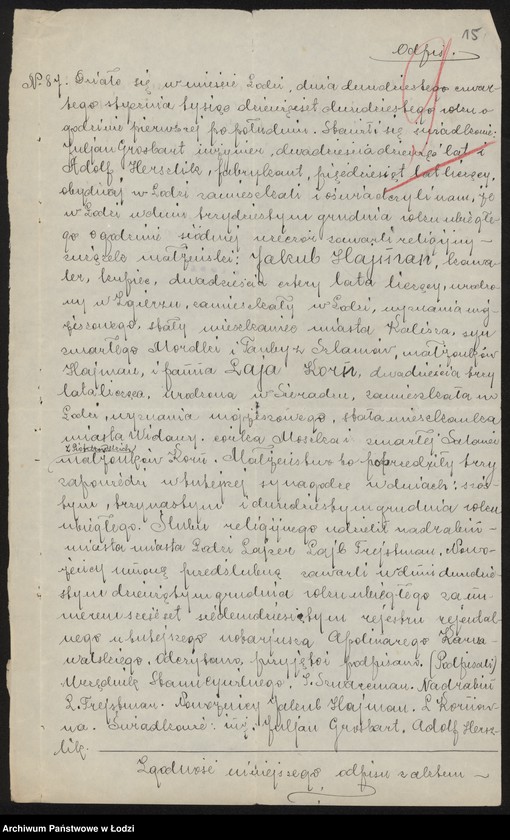 15
Odpis.
№ 87. Działo się w mieście Łodzi, dnia dwudziestego czwar-
tego stycznia tysiąc dziewięćset dwudziestego roku o
godzinie pierwszej po południu. Stawili się świadkowie:
Juljan Grosbart inżynier, dwadzieścia dziewięć lat i
Adolf Herszlik, fabrykant, pięćdziesiąt lat liczący,
obydwaj w Łodzi zamieszkali i oświadczyli nam, że
w Łodzi w dniu trzydziestym grudnia roku ubiegłe-
go o godzinie siódmej wieczór zawarli religijny
związek małżeński: Jakub Hajman, kawa-
ler, kupiec, dwadzieścia cztery lata liczący, urodzo-
ny w Zgierzu, zamieszkały w Łodzi, wyznania moj-
żeszowego, stały mieszkaniec miasta Kalisza, syn
zmarłego Mordki i Tauby z Szlamów, małżonków
Hajman, i panna Łaja Korn, dwadzieścia trzy
lata licząca, urodzona w Sieradzu, zamieszkała w
Łodzi, wyznania mojżeszowego, stała mieszkanka
miasta Widawy. córka Moszka i zmarłej Salomei
małżonków Korn. Małżeństwo to poprzedziły trzy
zapowiedzi w tutejszej synagodze w dniach: szós-
tym, trzynastym i dwudziestym grudnia roku
ubiegłego. Ślubu religijnego udzielił nadrabin
miasta miasta Łodzi Lajzer Lajb Trejstman. Nowo-
żeńcy umowę przedślubną zawarli w dniu dwudzie-
stym dziewiątym grudnia roku ubiegłego za nu-
merem sześćset siedemdziesiątym rejestru rejental-
nego u tutejszego notarjusza Apolinarego Karna-
watskiego. Odczytano, przyjęto i podpisano. (Podpisali)
Urzędnik Stanu Cywilnego. S. Szwarcman. Nadrabin
L. Trejstman. Nowożeńcy Jakub Hajman. Ł Kornów-
na. Świadkowie: inż. Juljan Grosbart, Adolf Hersz-
lik.
Zgodność niniejszego odpisu z aktem
Archiwum Państwowe w Łodzi